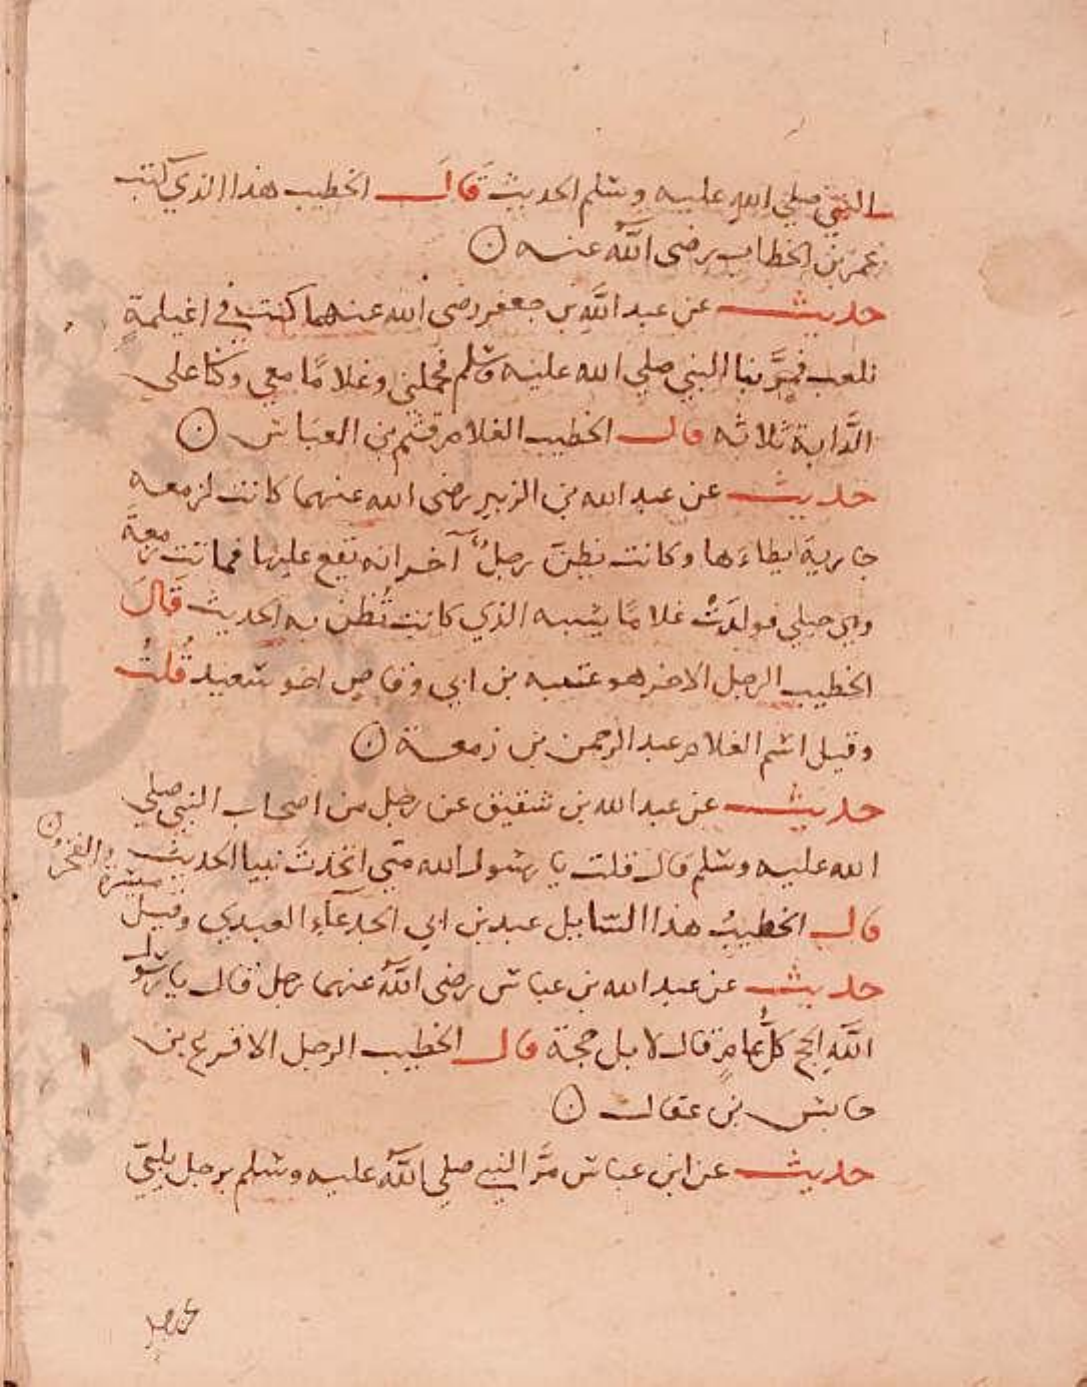 النبي صلي الله عليه وسلم الحديث قال الخطيب هذا الذي كتب
عمر بن الخطاب رضى الله عنه ن
حديث عن عبد الله بن جعفر رضى الله عنهما كنت في اغيلمةٍ
نلعب فمرَّ بنا النبي صلي الله عليه وسلم فحملني وغلامًا معي وكنا على
الدَّابة ثلاثه قال الخطيب الغلام قثم بن العباس ن
حديث عن عبد الله بن الزبير رضى الله عنهما كانت لزمعه
جارية يطاءها وكانت تظن رجلٌ آخر انه يقع عليها فمات زمعة
وهي حبلي فولدَتْ غلامًا يشبه الذي كانت تُظن به الحديث قَالَ
الخطيب الرجل الاخر هو عتبه بن ابي وقاص اخو سعيد قُلتُ
وقيل اسم الغلام عبد الرحمن بن زمعة ن
حديث عن عبد الله بن شقيق عن رجل من اصحاب النبي صلي
الله عليه وسلم قال قلت يا رسول الله متي اتخذتَ نبيا الحديث
قال الخطيبُ هذا السايل عبد بن ابي الجدعآءِ العبدي وقيل
ميسرة الفجر ن
حديث عن عبد الله بن عباس رضى الله عنهما رجل قال يا رسول
اللَّهِ الحج كلَّ عامٍ قال لا بل حجة قال الخطيب الرجل الاقرع بن
حابس بن عقال ن
حديث عن ابن عباس مرَّ النبي صلي الله عليه وسلم برجل يلبيّ